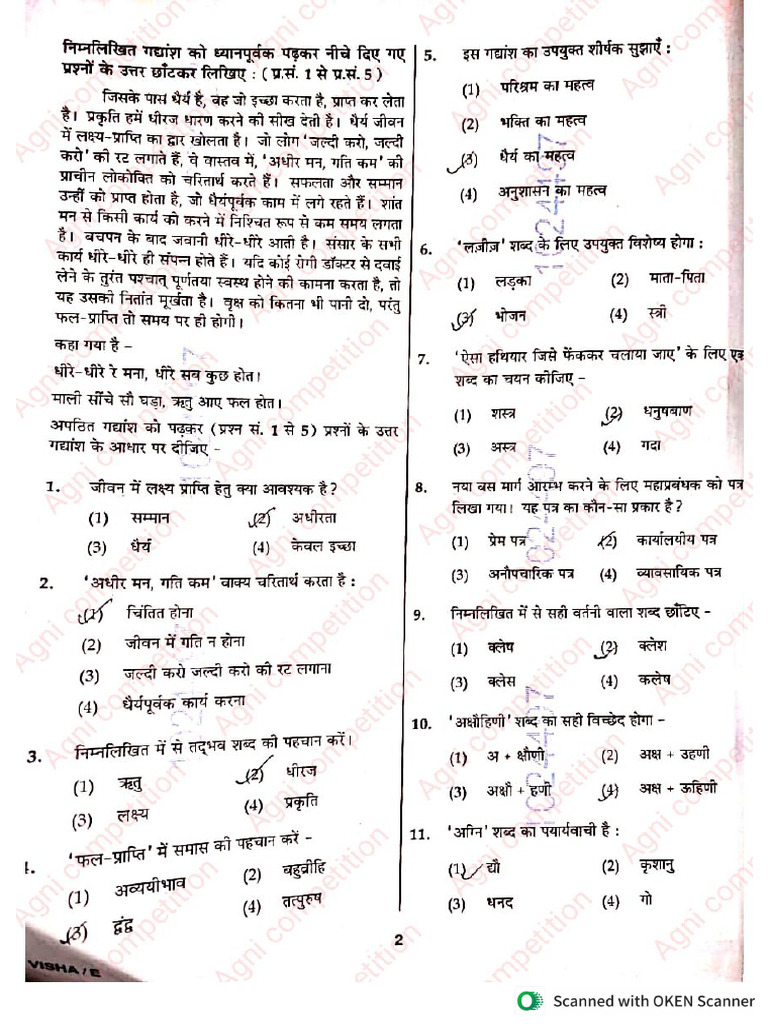 निम्नलिखित गद्यांश को ध्यानपूर्वक पढ़कर नीचे दिए गए
प्रश्नों के उत्तर छाँटकर लिखिए : ( प्र.सं. 1 से प्र.सं. 5 )
जिसके पास धैर्य है, वह जो इच्छा करता है, प्राप्त कर लेता
है। प्रकृति हमें धीरज धारण करने की सीख देती है। धैर्य जीवन
में लक्ष्य-प्राप्ति का द्वार खोलता है। जो लोग 'जल्दी करो, जल्दी
करो' की रट लगाते हैं, वे वास्तव में, 'अधीर मन, गति कम' की
प्राचीन लोकोक्ति को चरितार्थ करते हैं। सफलता और सम्मान
उन्हीं को प्राप्त होता है, जो धैर्यपूर्वक काम में लगे रहते हैं। शांत
मन से किसी कार्य को करने में निश्चित रूप से कम समय लगता
है। बचपन के बाद जवानी धीरे-धीरे आती है। संसार के सभी
कार्य धीरे-धीरे ही संपन्न होते हैं। यदि कोई रोगी डॉक्टर से दवाई
लेने के तुरंत पश्चात् पूर्णतया स्वस्थ होने की कामना करता है, तो
यह उसकी नितांत मूर्खता है। वृक्ष को कितना भी पानी दो, परंतु
फल-प्राप्ति तो समय पर ही होगी।
कहा गया है –
धीरे-धीरे रे मना, धीरे सब कुछ होत।
माली सींचे सौ घड़ा, ऋतु आए फल होत।
अपठित गद्यांश को पढ़कर (प्रश्न सं. 1 से 5) प्रश्नों के उत्तर
गद्यांश के आधार पर दीजिए -
1. जीवन में लक्ष्य प्राप्ति हेतु क्या आवश्यक है ?
(1) सम्मान (2) अधीरता
(3) धैर्य (4) केवल इच्छा
2. 'अधीर मन, गति कम' वाक्य चरितार्थ करता है :
(1) चिंतित होना
(2) जीवन में गति न होना
(3) जल्दी करो जल्दी करो की रट लगाना
(4) धैर्यपूर्वक कार्य करना
3. निम्नलिखित में से तद्भव शब्द की पहचान करें।
(1) ऋतु (2) धीरज
(3) लक्ष्य (4) प्रकृति
4. 'फल-प्राप्ति' में समास की पहचान करें -
(1) अव्ययीभाव (2) बहुव्रीहि
(3) द्वंद्व (4) तत्पुरुष
5. इस गद्यांश का उपयुक्त शीर्षक सुझाएँ :
(1) परिश्रम का महत्व
(2) भक्ति का महत्व
(3) धैर्य का महत्व
(4) अनुशासन का महत्व
6. 'लज़ीज़' शब्द के लिए उपयुक्त विशेष्य होगा :
(1) लड़का (2) माता-पिता
(3) भोजन (4) स्त्री
7. 'ऐसा हथियार जिसे फेंककर चलाया जाए' के लिए एक
शब्द का चयन कीजिए -
(1) शस्त्र (2) धनुषबाण
(3) अस्त्र (4) गदा
8. नया बस मार्ग आरम्भ करने के लिए महाप्रबंधक को पत्र
लिखा गया। यह पत्र का कौन-सा प्रकार है ?
(1) प्रेम पत्र (2) कार्यालयीय पत्र
(3) अनौपचारिक पत्र (4) व्यावसायिक पत्र
9. निम्नलिखित में से सही वर्तनी वाला शब्द छाँटिए -
(1) क्लेष (2) क्लेश
(3) क्लेस (4) कलेष
10. 'अक्षौहिणी' शब्द का सही विच्छेद होगा -
(1) अ + क्षौणी (2) अक्ष + उहणी
(3) अक्षौ + हणी (4) अक्ष + ऊहिणी
11. 'अग्नि' शब्द का पयार्यवाची है :
(1) द्यौ (2) कृशानु
(3) धनद (4) गो
2
VISHA / E
Agni competition
1024407
Scanned with OKEN Scanner